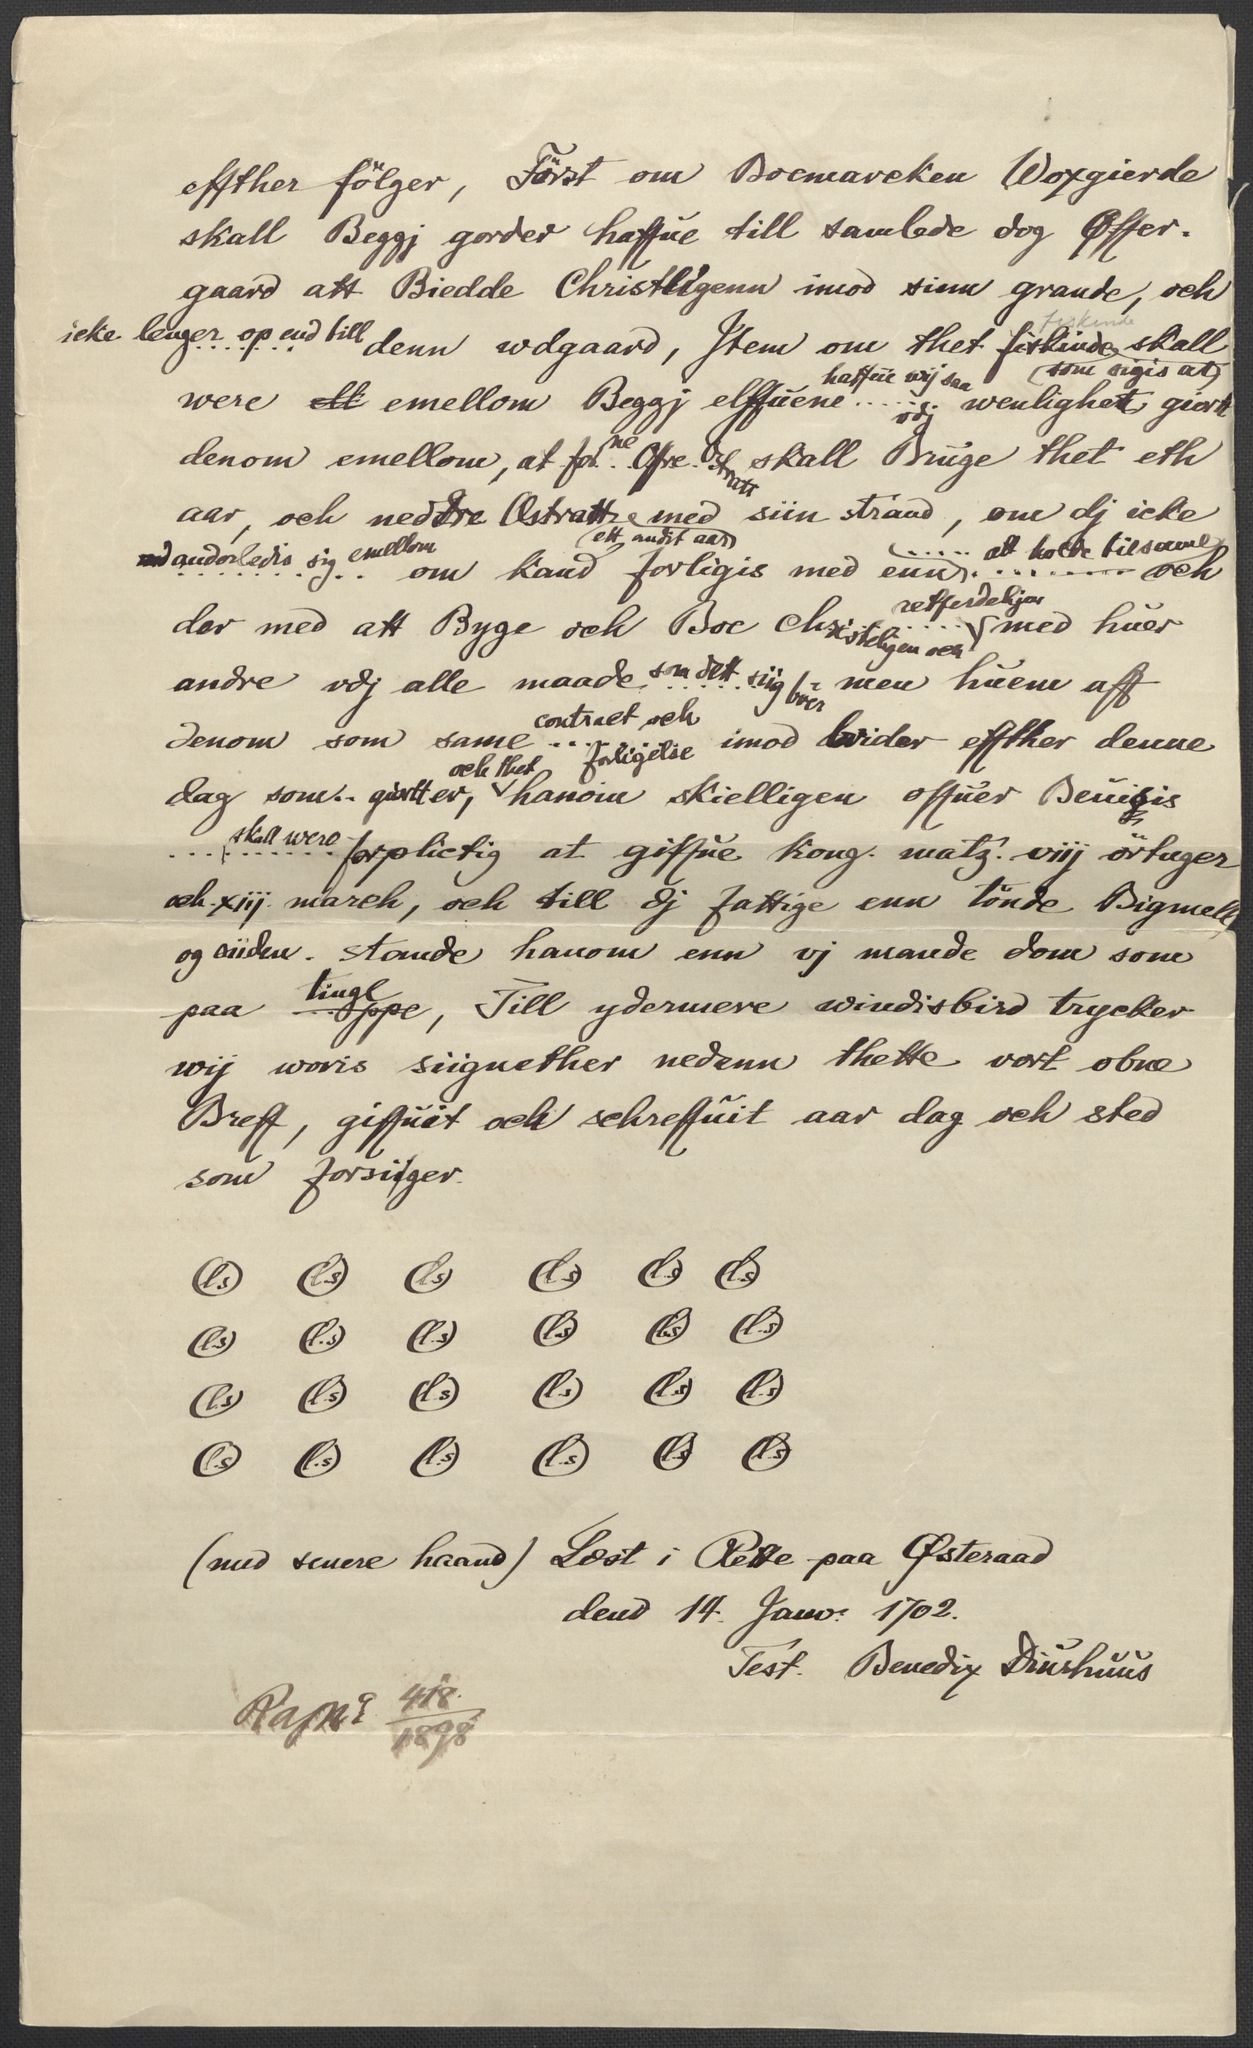 effther fölger, Först om Bocmarcken Woxgierde
skall Beggj gorder haffue till samlede dog Øffer-
gaard att Biedde Christligenn imod sinn grande, och
icke lenger op end till denn wdgaard, Item om thet fiskinde skall
fiskinde
(som sigis at)
were att emellom Beggj elffuene haffue wij saa vdj wenlighett giortt
denom emellom, at for.ne Ofre Ostratt skall Bruge thet eth
aar, och nedtre Ostratt med siin strand, om dj icke
(ett andit aar)
andorledis sig emellom om kand forligis med enn att holde tilsame och
der med att Byge och Boc Christeligen och retferdeligen med huer
andre vdj alle maade som dett siig bör men huem aff
denom som same contract och forligelse imod brider effther denne
dag som giortt er, och thet hanom skielligen offuer Beuisis
skall were forplictig at giffue kong. matz. viij örtuger
och xiij march, och till dj fattige enn tönde Bigmell,
og siiden stande hanom enn vj mande dom som
paa tingl oppe, Till ydermere windisbird trycker
wij woris siignether nedenn thette vort obne
Breff, giffuit och schreffuit aar dag och sted
som forsiiger.
(l.s) (l.s) (l.s) (l.s) (l.s) (l.s)
(l.s) (l.s) (l.s) (l.s) (l.s) (l.s)
(l.s) (l.s) (l.s) (l.s) (l.s) (l.s)
(l.s) (l.s) (l.s) (l.s) (l.s) (l.s)
(med senere haand) Læst i Rette paa Østeraad
dend 14. Janv: 1702.
Test. Benedix Diushuus
418
1898